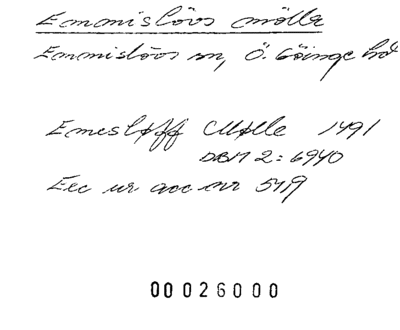 Emmislövs mölla
Emmislövs sn, Ö. Göinge hd
Emesløff Mølle 1491
DBM 2:6940
Exc ur acc nr 5419
00026000